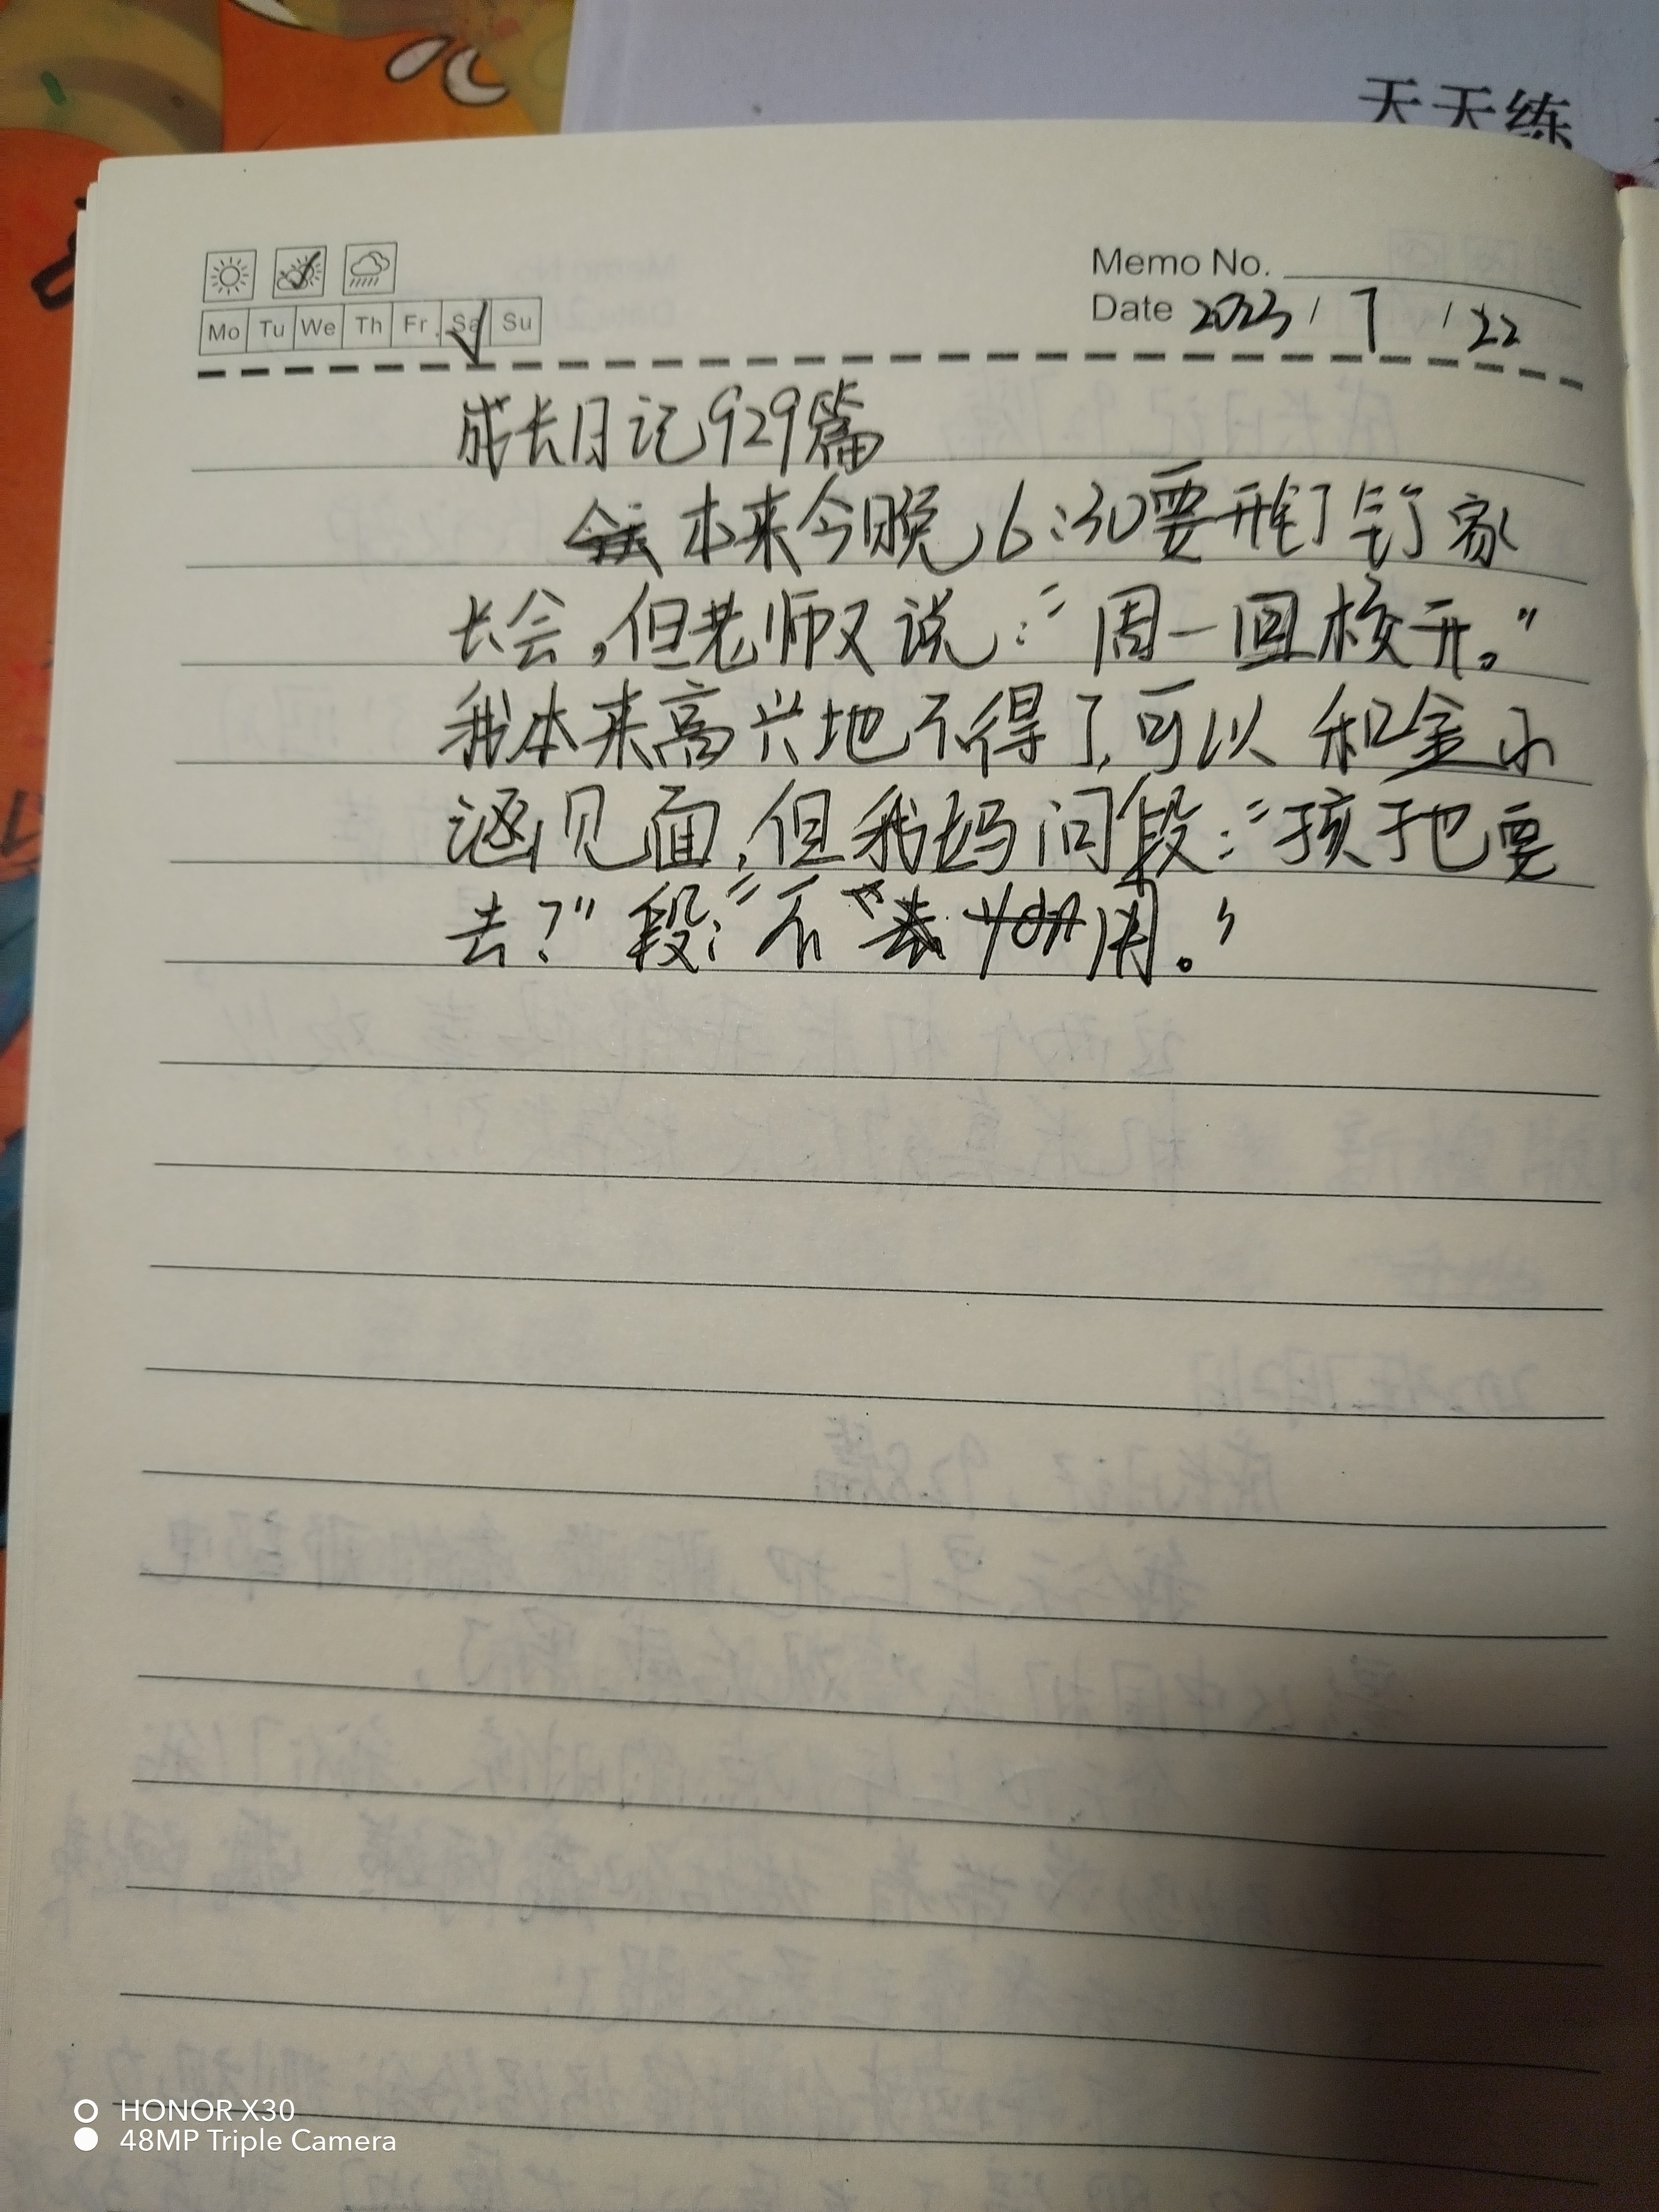 天天练
Memo No.
Mo Tu We Th Fr. Sa Su
Date 2023 / 7 / 22
成长日记929篇
本来今晚6:30要开钉钉家
长会,但老师又说:“周一回校开。”
我本来高兴地不得了,可以和金小
涵见面,但我妈问段:“孩子也要
去?”段:“不用。”
HONOR X30
48MP Triple Camera